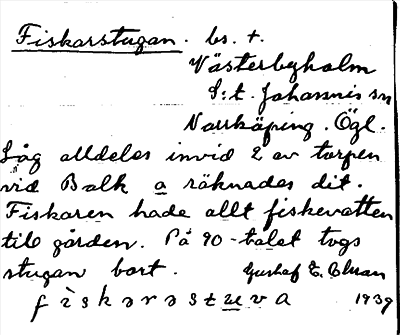 Fiskarstugan. bs. t.
Västerbyholm
S:t. Johannis sn
Norrköping. Ögl.
Låg alldeles invid 2 av torpen
vid Balk a räknades dit.
Fiskaren hade allt fiskevatten
till gården. På 90-talet togs
stugan bort. Gustaf E.
fiskarast 1939